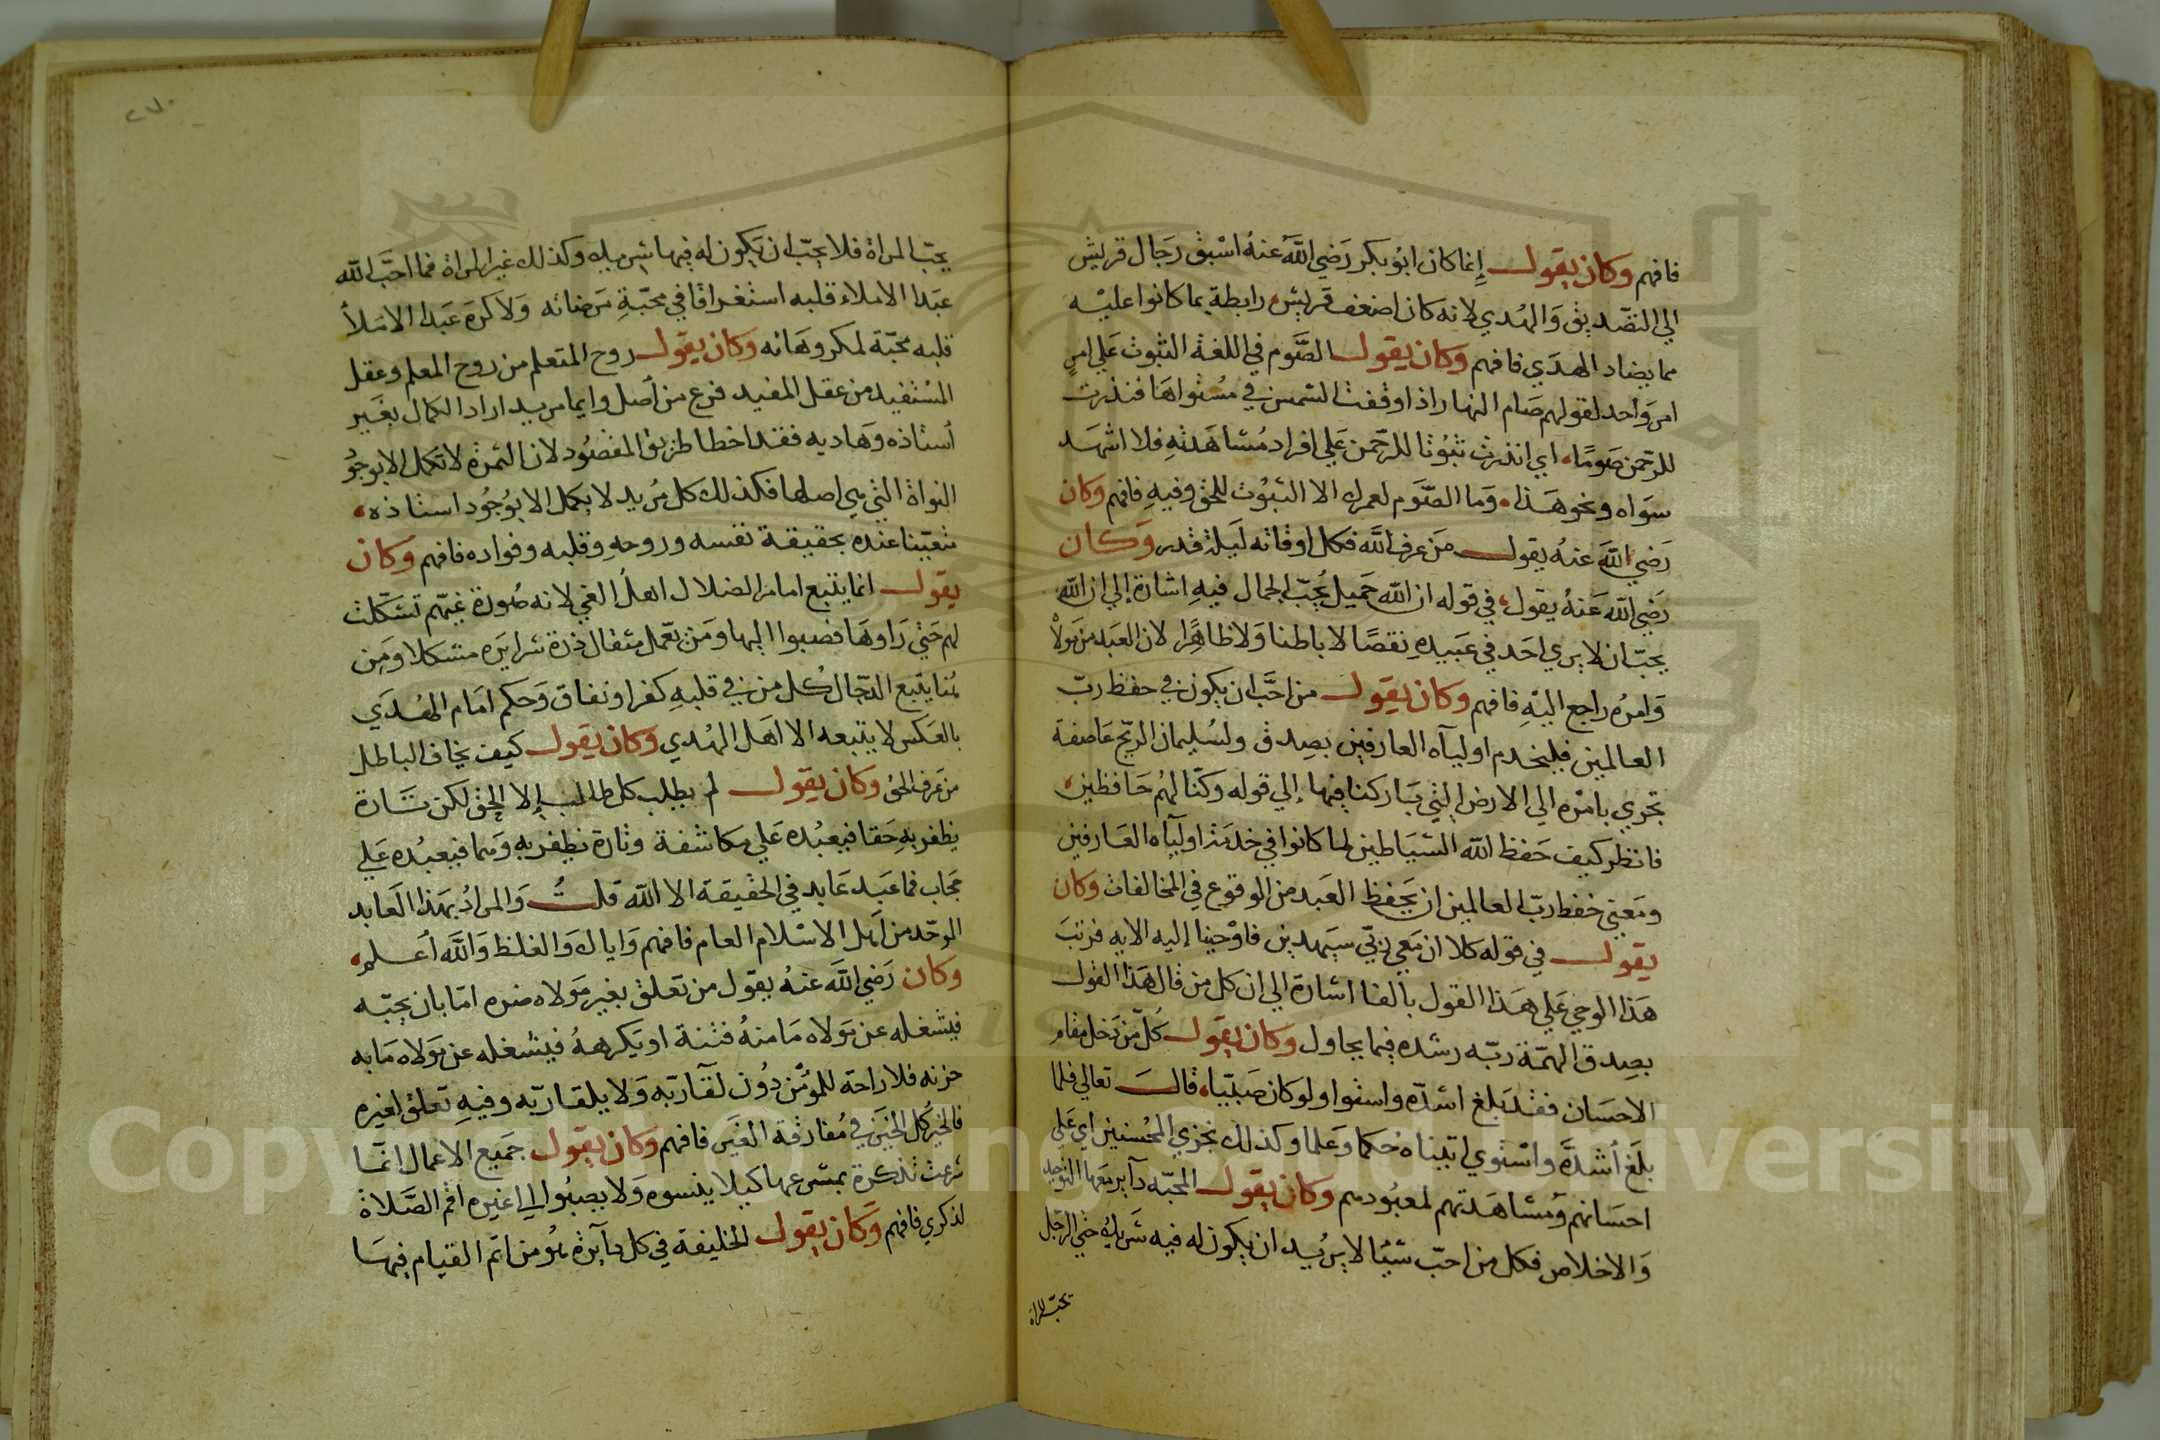 فافهم وكان يقول إنما كان ابو بكر رضي الله عنه اسبق رجال قريش
الي التصديق والهدي لانه كان اضعف قريش رابطة بما كانوا عليه
مما يضاد الهدي فافهم وكان يقول الصوم في اللغة الثبوت علي امر
امر واحد لقولهم صام النهار اذا وقفت الشمس في مستواها فنذرت
للرحمن صوما اي انذرت ثبوتا للرحمن علي افراد مشاهدته فلا اشهد
سواه ونحو هذا وما الصوم لعمرك الا الثبوت للحق وفيه فافهم وكان
رضي الله عنه يقول من عرف الله فكل اوقاته ليلة قدر وكان
رضي الله عنه يقول في قوله ان الله جميل يحب الجمال فيه اشارة إلي ان الله
يحب ان لا يري احد في عبيده نقصا لا باطنا ولا ظاهرا لان العبد من مولاه
وامره راجع اليه فافهم وكان يقول من احب ان يكون في حفظ رب
العالمين فليخدم اولياه العارفين بصدق ولسليمان الريح عاصفة
تجري بامره الي الارض التي باركنا فيها إلي قوله وكنا لهم حافظين
فانظر كيف حفظ الله الشياطين لما كانوا في خدمة اوليآه العارفين
ومعني حفظ رب العالمين ان يحفظ العبد من الوقوع في المخالفات وكان
يقول في قوله كلا ان معي ربي سيهدين فاوحينا إليه الايه فرتب
هذا الوحي علي هذا القول بالفا اشارة الي ان كل من قال هذا القول
بصدق الهمة ربه رشده فيما يحاول وكان يقول كل من دخل مقام
الاحسان فقد بلغ اشده واستوا ولو كان صبيا قال تعالي فلما
بلغ أشده واستوي اتيناه حكما وعلما وكذلك نجزي المحسنين اي علي
احسانهم ومشاهدتهم لمعبودهم وكان يقول المحبه دآير معها التوحيد
والاخلاص فكل من احب شيئا لا يريد ان يكون له فيه شريك حتي الرجل
يحب المراة
يحب المراة فلا يحب ان يكون له فيها شريك وكذلك غير المراة فما احب الله
عبدا الا ملاء قلبه استغراقا في محبة مرضاته ولا كره عبدا الا ملأ
قلبه محبة لمكروهاته وكان يقول روح المتعلم من روح المعلم وعقل
المستفيد من عقل المفيد فرع من أصل وايما مريد اراد الكمال بغير
أستاذه وهاديه فقد اخطا طريق المقصود لان الثمرة لا تكمل الا بوجود
النواة التي هي اصلها فكذلك كل مريد لا يكمل الا بوجود استاذه
متعينا عنده بحقيقة نفسه وروحه وقلبه وفواده فافهم وكان
يقول انما يتبع امام الضلال اهل الغي لانه صورة غيهم تشكلت
لهم حتي راوها فصبوا اليها ومن يعمل مثقال ذرة شرا يره متشكلا ومن
هنا يتبع الدجال كل من في قلبه كفر او نفاق وحكم امام الهدي
بالعكس لا يتبعه الا اهل الهدي وكان يقول كيف يخاف الباطل
من عرف الحق وكان يقول لم يطلب كل طالب إلا الحق لكن تارة
يظفر به حقا فيعبده علي مكاشفة وتارة يظفر به وهما فيعبده علي
حجاب فما عبد عابد في الحقيقة الا الله قلت والمراد بهذا العابد
الموحد من اهل الاسلام العام فافهم واياك والغلظ والله أعلم
وكان رضي الله عنه يقول من تعلق بغير مولاه ضره اما بان يحبه
فيشغله عن مولاه ما منه فتنة او يكرهه فيشغله عن مولاه ما به
حزنه فلا راحة للمؤمن دون لقآ ربه ولا يلقا ربه وفيه تعلق لغيره
فالخير كل الخير في مفارقة الغير فافهم وكان يقول جميع الاعمال انما
شرعت تذكرة بمشرعها كيلا ينسوه ولا يصبوا الي غيره اقم الصلاة
لذكري فافهم وكان يقول للخليفة في كل دآيرة مومن اتم القيام فيها